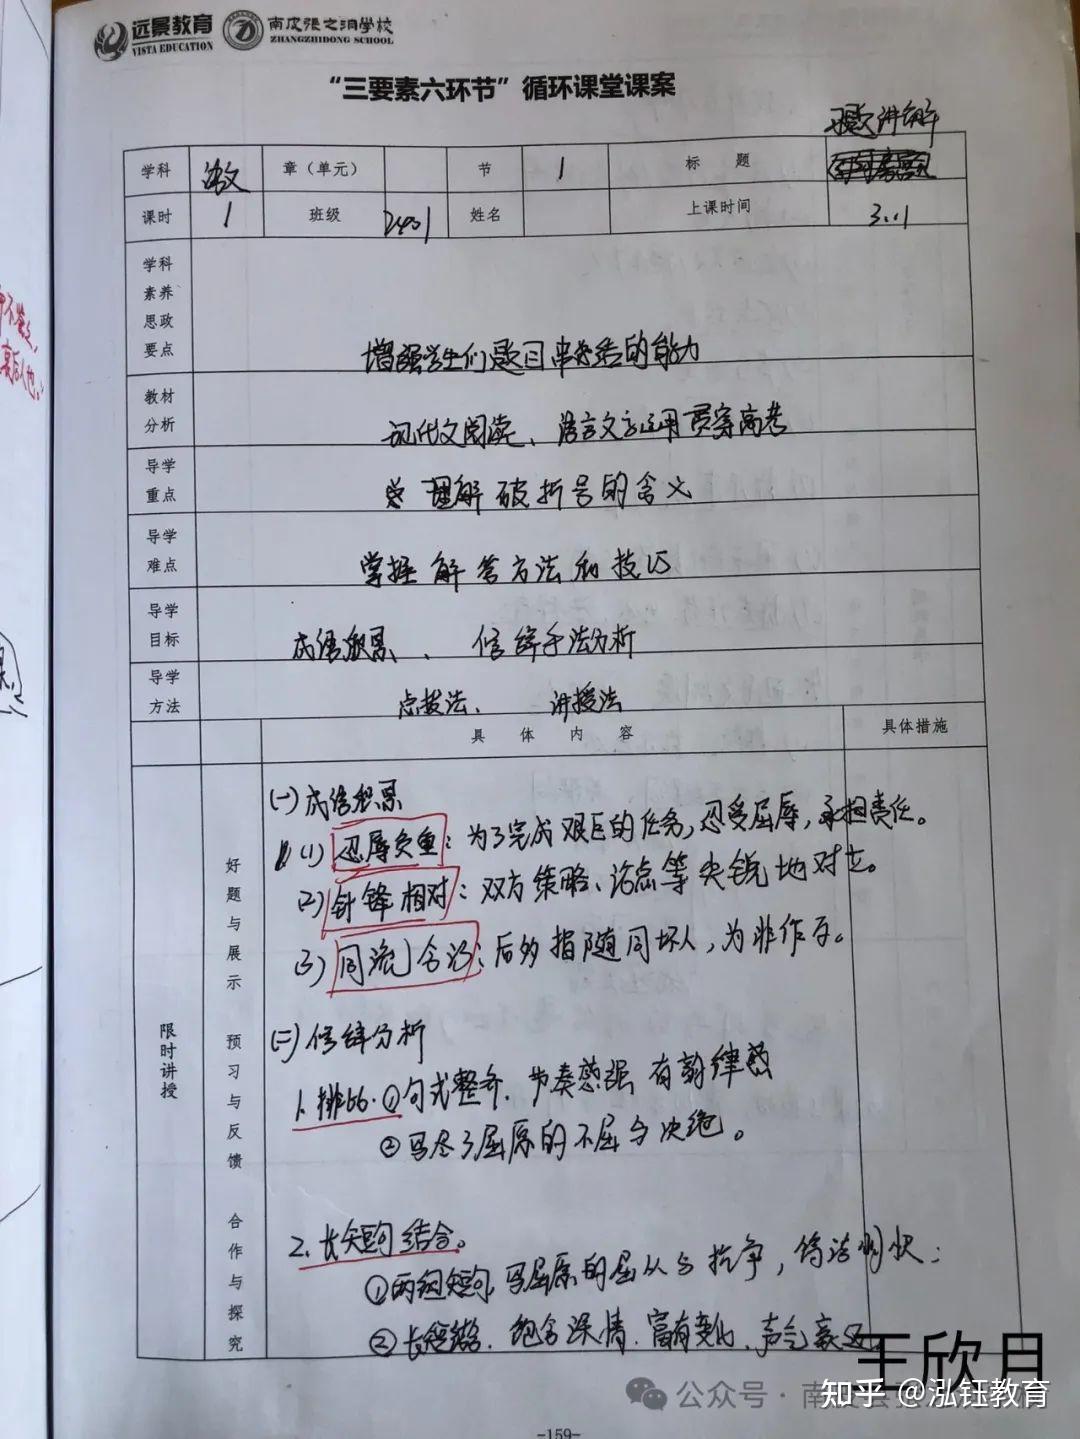 远景教育 南皮张之洞学校
VISTA EDUCATION ZHANGZHIDONG SCHOOL
“三要素六环节”循环课堂课案
习题讲解
学科 语文 章（单元） 节 1 标 题
课时 1 班级 2401 姓名 上课时间 3.11
学科
素养
思政
要点
增强学生们题目串总结的能力
教材
分析
现代文阅读、语言文字运用贯穿高考
导学
重点
理解破折号的含义
导学
难点
掌握解答方法和技巧
导学
目标
成语积累、 修辞手法分析
导学
方法
点拨法、 讲授法
具 体 内 容 具体措施
限时讲授
好题与展示
预习与反馈
合作与探究
(一)成语积累
(1)忍辱负重：为了完成艰巨的任务，忍受屈辱，承担责任。
(2)针锋相对：双方策略、论点等尖锐地对立。
(3)同流合污：后多指随同坏人，为非作歹。
(二)修辞分析
1.排比.①句式整齐.节奏感强 有韵律感
②写尽了屈原的不屈与决绝。
2.长短句结合。
①两组短句,写屈原的屈从与抗争，
②长短结合.饱含深情.富有变化.声气豪迈
王欣月
公众号·南皮县
知乎 @泓钰教育
-159-